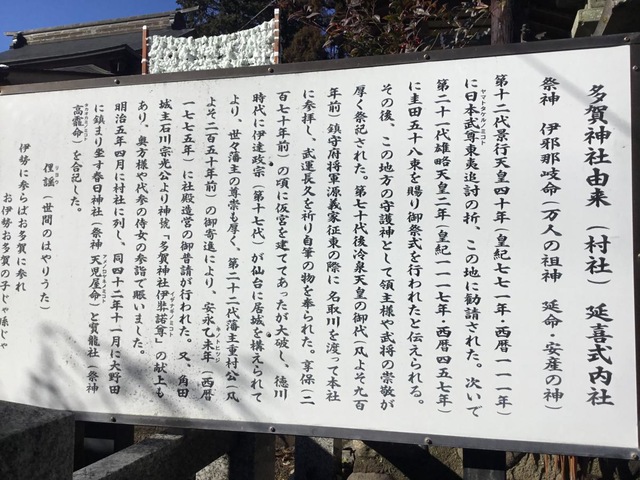 多賀神社由来（村社）延喜式内社
祭神　伊邪那岐命（万人の祖神　延命・安産の神）
第十二代景行天皇四十年（皇紀七七一年・西暦一一一年）
に日本武尊東夷追討の折、この地に勧請された。次いで
ヤマトタケルノミコト
第二十一代雄略天皇二年（皇紀一一一七年・西暦四五七年）
に圭田五十八束を賜り御祭式を行われたと伝えられる。
その後、この地方の守護神として領主様や武将の崇敬が
厚く祭祀された。第七十代後冷泉天皇の御代（凡よそ九百
年前）鎮守府将軍源義家征東の際に名取川を渡って本社
に参拝し、武運長久を祈り自筆の物を奉られた。享保（二
百七十年前）の頃に仮宮を建ててあったが大破し、徳川
時代に伊達政宗（第十七代）が仙台に居城を構えられて
より、世々藩主の尊崇も厚く、第二十二代藩主重村公（凡
よそ二百五十年前）の御寄進により、安永乙未年（西暦
キノトヒツジ
一七七五年）に社殿造営の御普請が行われた。又、角田
城主石川宗光公より神號「多賀神社伊弉諾尊」の献上も
イザナギノミコト
あり、奥方様や代参の侍女の参詣で賑いました。
明治五年四月に村社に列し、同四十二年十一月に大野田
に鎮まり坐す春日神社（祭神　天児屋命）と貿龍社（祭神
アメノコヤネノミコト
高龗命）を合祀した。
タカオカミノミコト
俚謡（世間のはやりうた）
リヨウ
伊勢に参らばお多賀に参れ
お伊勢お多賀の子じゃ孫じゃ